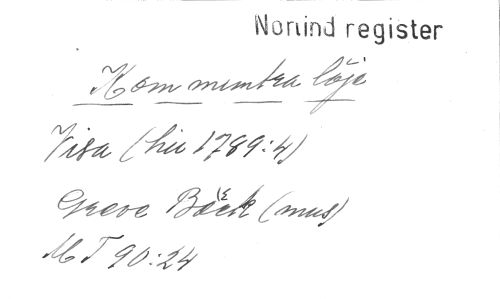 Norlind register
Kom muntra löje
Visa (hu 1789:4)
Greve Bäck (mus)
MT 90:24